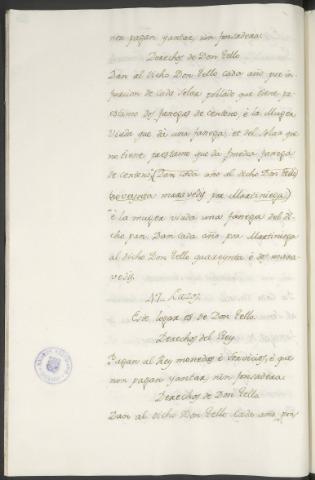 non pagan yantar, nin fonsadera.
Derechos de Don Tello.
Dan al dicho Don Tello cada año por in-
furcion de cada solar poblado que tiene pre-
stamo dos fanegas de centeno, è la Muger
Viuda que dà una fanega, et del solar que
no tiene prestamo que dà media fanega
de centeno: (Dan cada año al dicho Don Tello
maravedis por Martiniega)
è la muger viuda una fanega del di-
cho pan. Dan cada año por Martiniega
al dicho Don Tello quarenta è dos mara-
vedis.
Este logar es de Don Tello.
Derechos del Rey.
Pagan al Rey monedas è servicios, è que
non pagan yantar, nin fonsadera.
Derechos de Don Tello.
Dan al dicho Don Tello cada año por